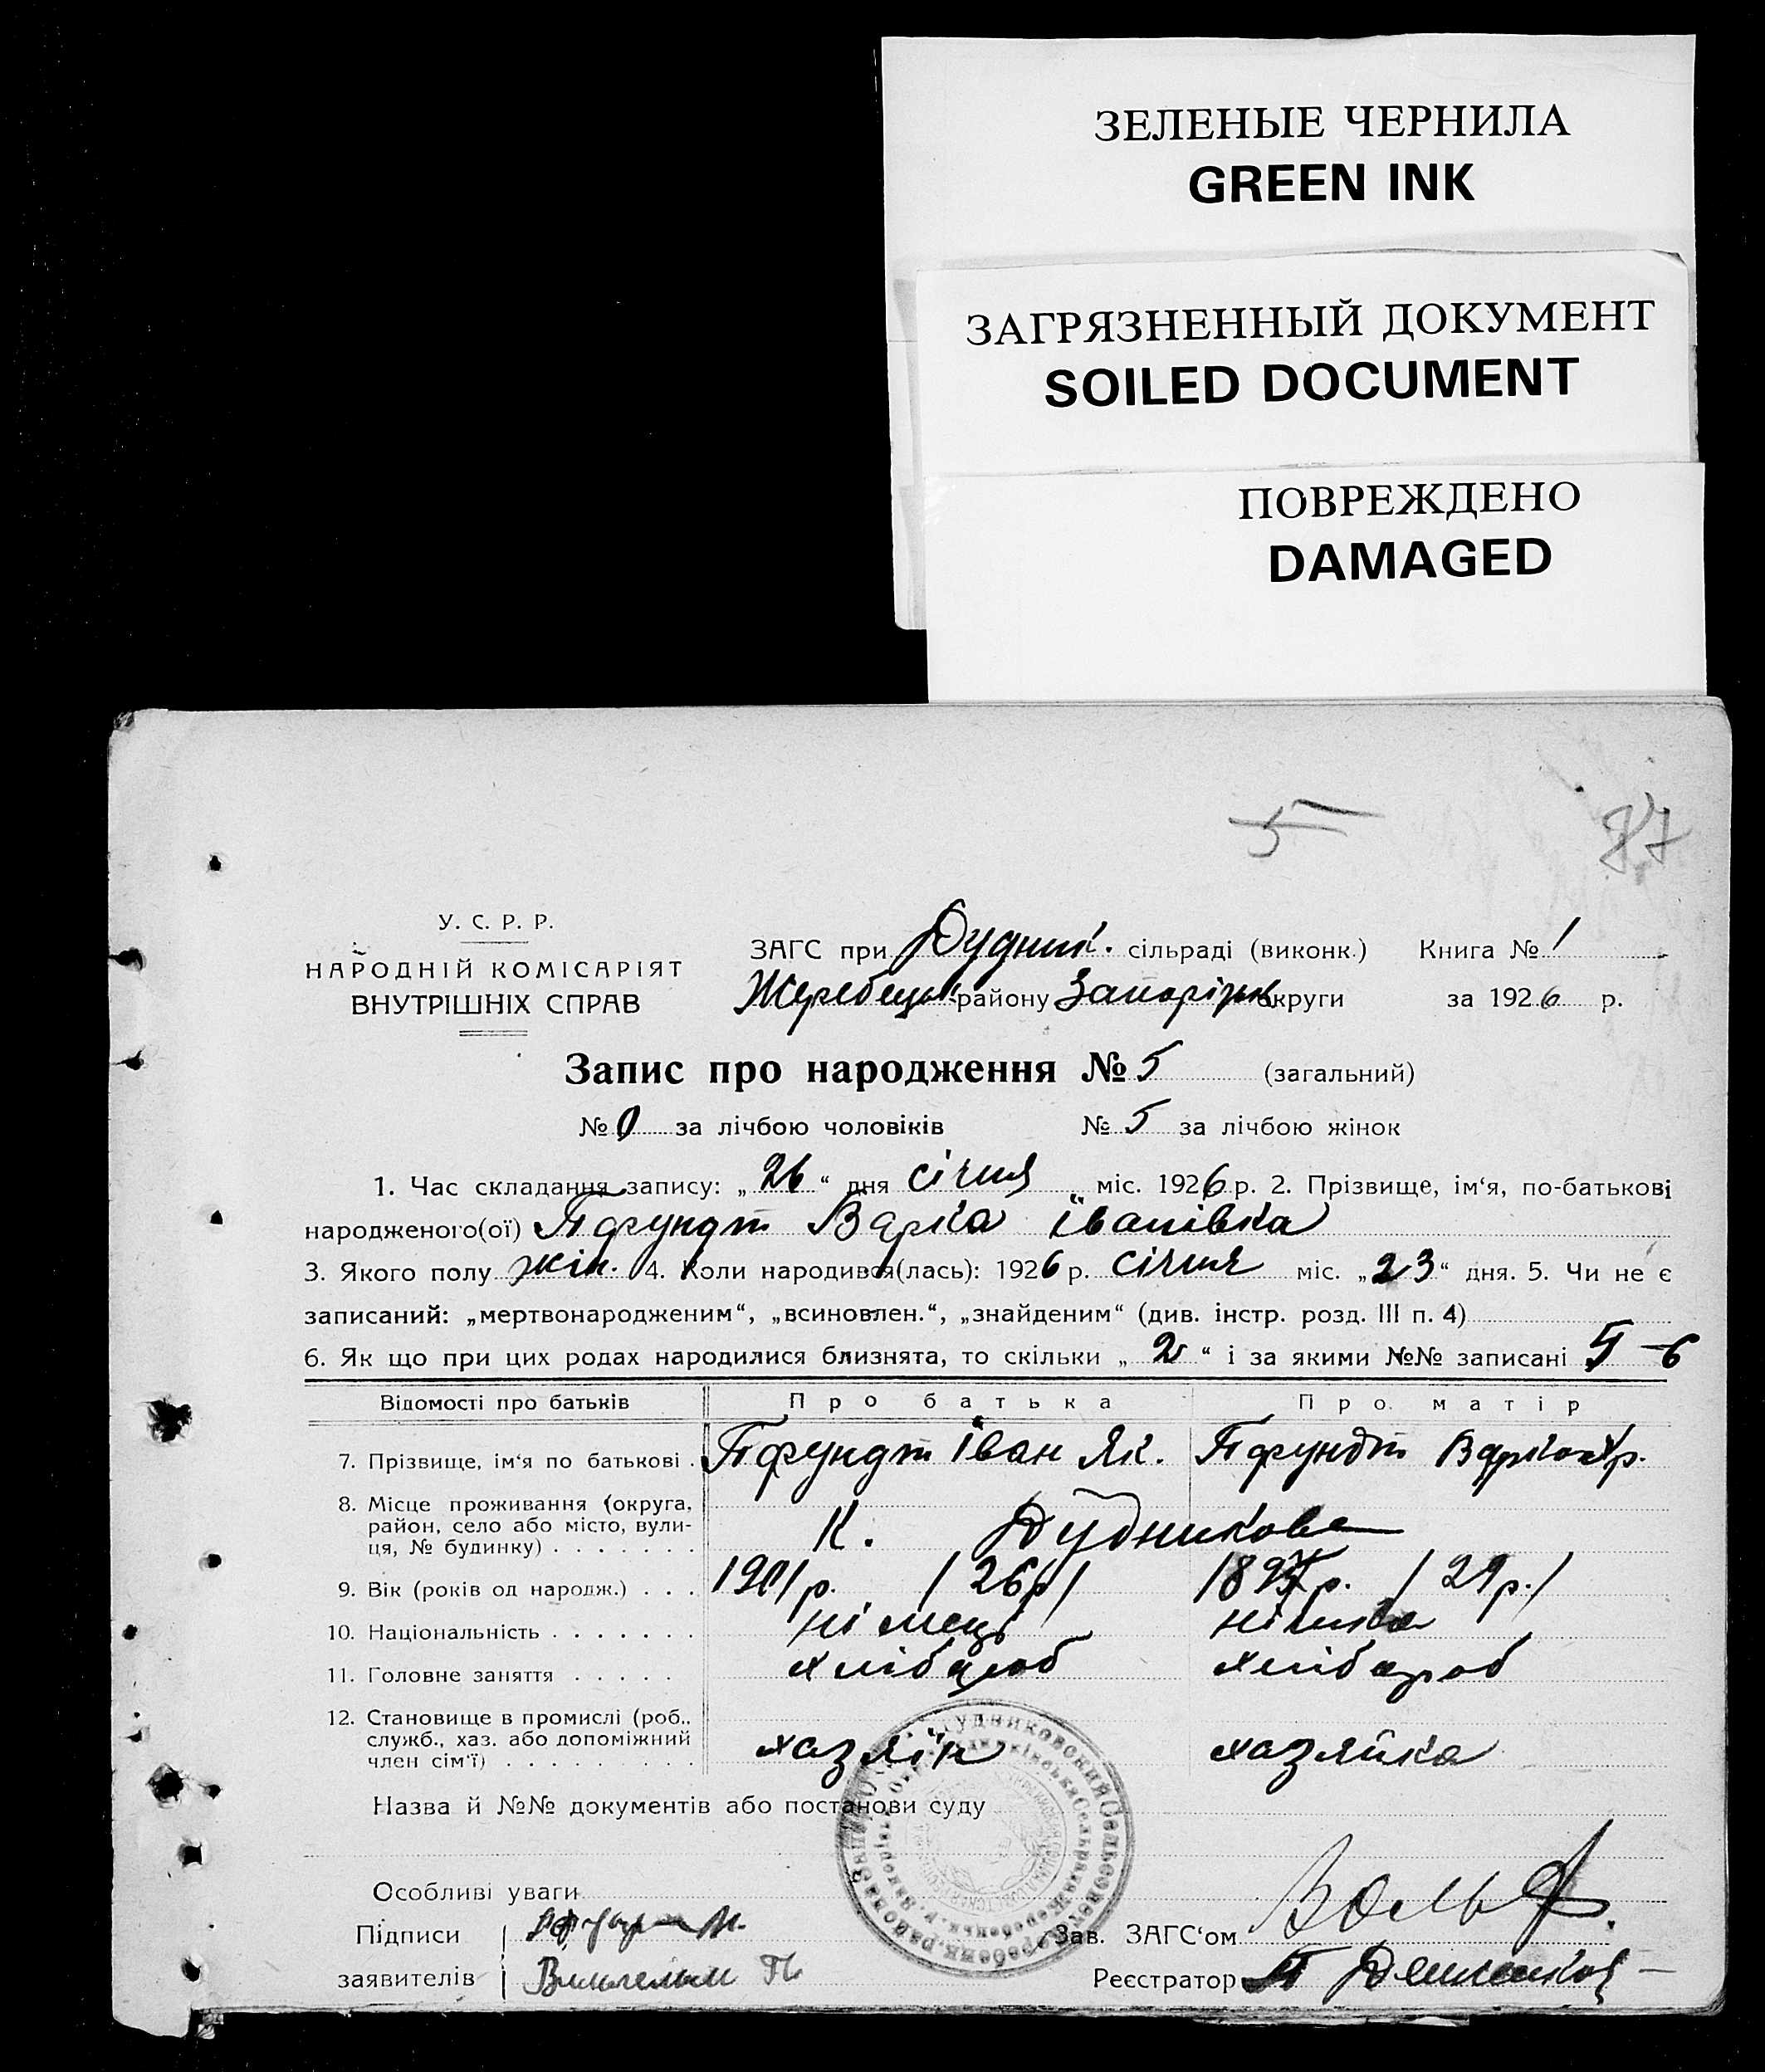 ЗЕЛЕНЫЕ ЧЕРНИЛА
GREEN INK
ЗАГРЯЗНЕННЫЙ ДОКУМЕНТ
SOILED DOCUMENT
ПОВРЕЖДЕНО
DAMAGED
5
У. С. Р. Р.
НАРОДНІЙ КОМІСАРІЯТ
ВНУТРІШНІХ СПРАВ
ЗАГС при Дудник. сільраді (виконк.) Книга № 1
Жеребецьк району Запорізьк округи за 1926 р.
Запис про народження № 5 (загальний)
№ 0 за лічбою чоловіків № 5 за лічбою жінок
1. Час складання запису: „26“ дня січня міс. 1926 р. 2. Прізвище, ім‘я, по-батькові
народженого(ої) Пфундт Варка Іванівка
3. Якого полу жін. 4. Коли народився(лась): 1926 р. січня міс. „23“ дня. 5. Чи не є
записаний: „мертвонародженим“, „всиновлен.“, „знайденим“ (див. інстр. розд. III п. 4)
6. Як що при цих родах народилися близнята, то скільки „2“ і за якими №№ записані 5-6
Відомості про батьків Про батька Про матір
7. Прізвище, ім‘я по батькові . Пфундт Іван Як. Пфундт Варка
8. Місце проживання (округа,
район, село або місто, вули-
ця, № будинку) . . . . . . . К. Дудникове
9. Вік (років од народж.) . . . 1901 р. /26 р/ р. /29 р./
10. Національність . . . . . . . німець німка
11. Головне заняття . . . . . хлібороб хлібороб
12. Становище в промислі (роб.,
служб., хаз. або допоміжний
член сім‘ї) . . . . . . . . . хазяїн хазяйка
Назва й №№ документів або постанови суду
Особливі уваги
Підписи
заявителів Вильгельм П
Зав. ЗАГС‘ом Вольф.
Реєстратор